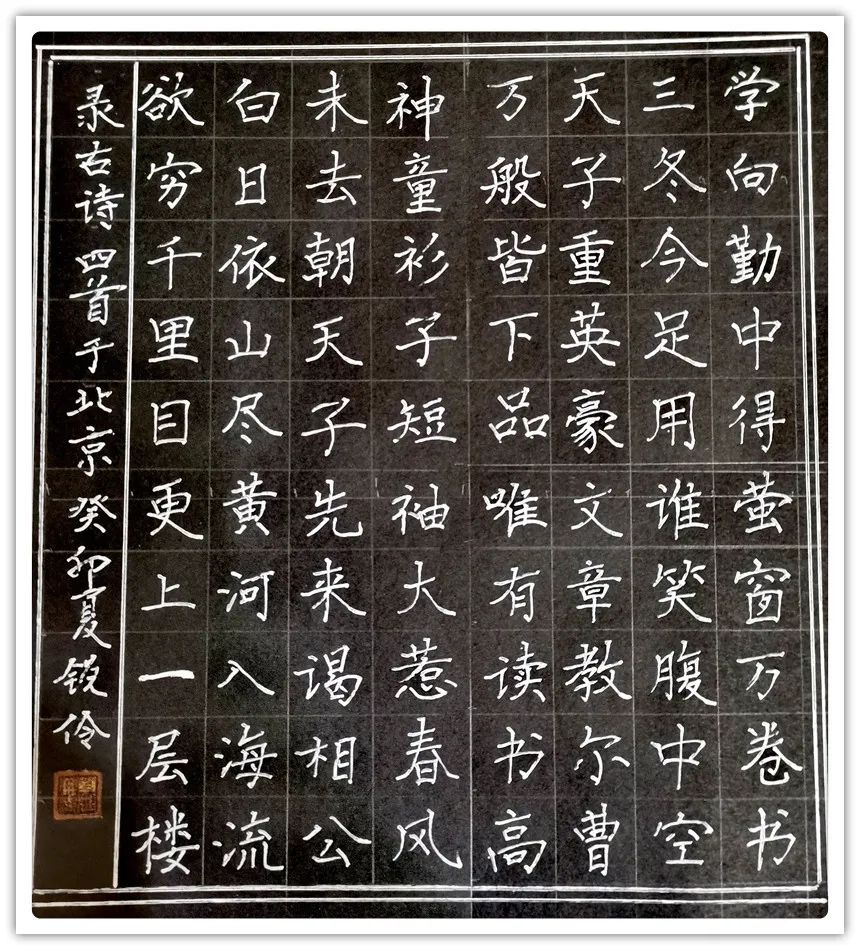 学向勤中得萤窗万卷书
三冬今足用谁笑腹中空
天子重英豪文章教尔曹
万般皆下品唯有读书高
神童衫子短袖大惹春风
未去朝天子先来谒相公
白日依山尽黄河入海流
欲穷千里目更上一层楼
录古诗四首于北京癸卯夏锐伶